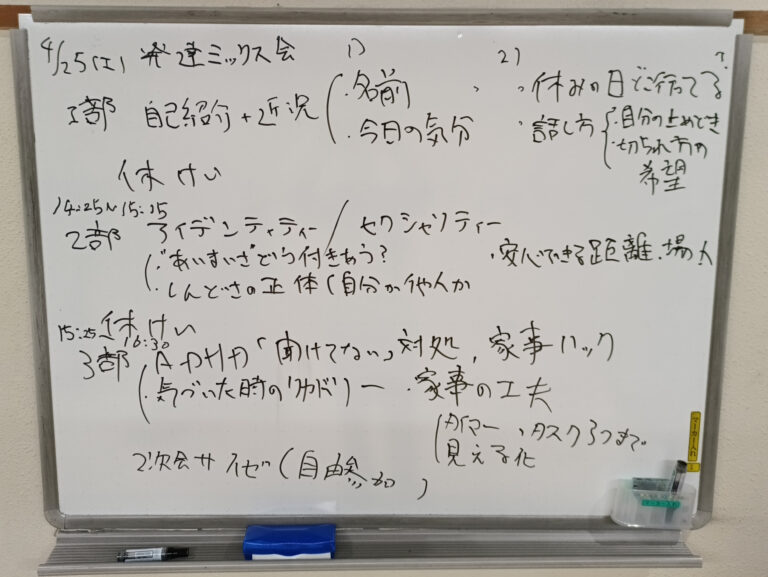 4/25(土) 発達ミックス会 1) 2)
1部 自己紹介+近況 ・名前 ・休みの日どこ行ってる?
・今日の気分 ・話し方 ・自分の止めどき
・切られ方の希望
休けい
14:25~15:15
2部 アイデンティティー / セクシャリティー
・"あいまいさ"どう付きあう? ・安心できる距離、場
・しんどさの正体(自分か他人か
15:25~16:30 休けい
3部 「聞けてない」対処、家事ハック
(気づいた時の ・家事の工夫
(タイマー、タスク3つまで
見える化
2次会サイゼ(自由参加)
マーカー入れ